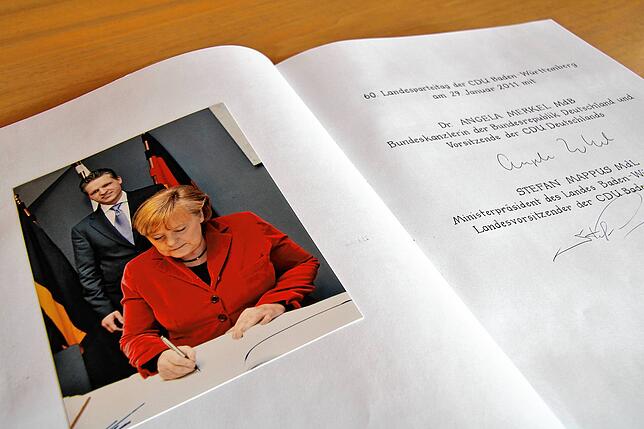 60. Landesparteitag der CDU Baden-Württemberg
am 29. Januar 2011 mit
Dr. ANGELA MERKEL MdB
Bundeskanzlerin der Bundesrepublik Deutschland und
Vorsitzende der CDU Deutschlands
STEFAN MAPPUS MdL
Ministerpräsident des Landes Baden-W
Landesvorsitzender der CDU Bad